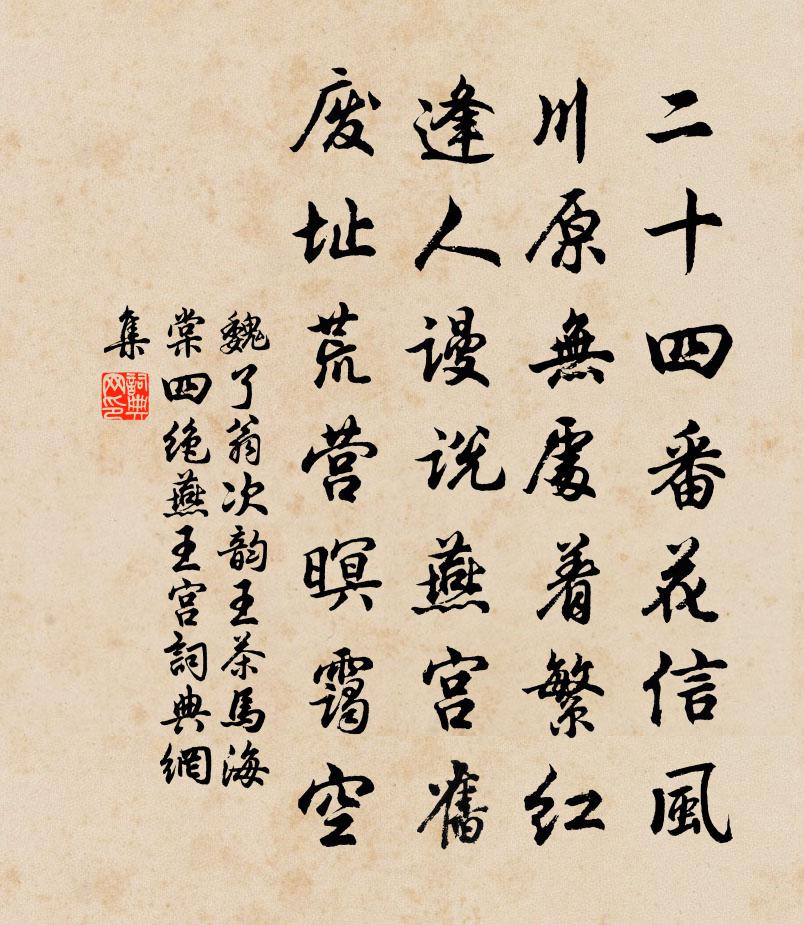 二十四番花信風
川原無處着繁紅
逢人謾説燕宫舊
废址荒营暝靄空
魏了翁次韵王茶馬海
棠四绝燕王宫詞典網
集
詞典
网印